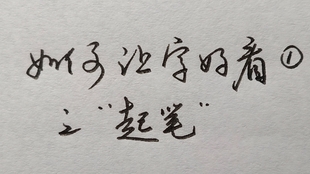 如何让字好看①
之“起笔”